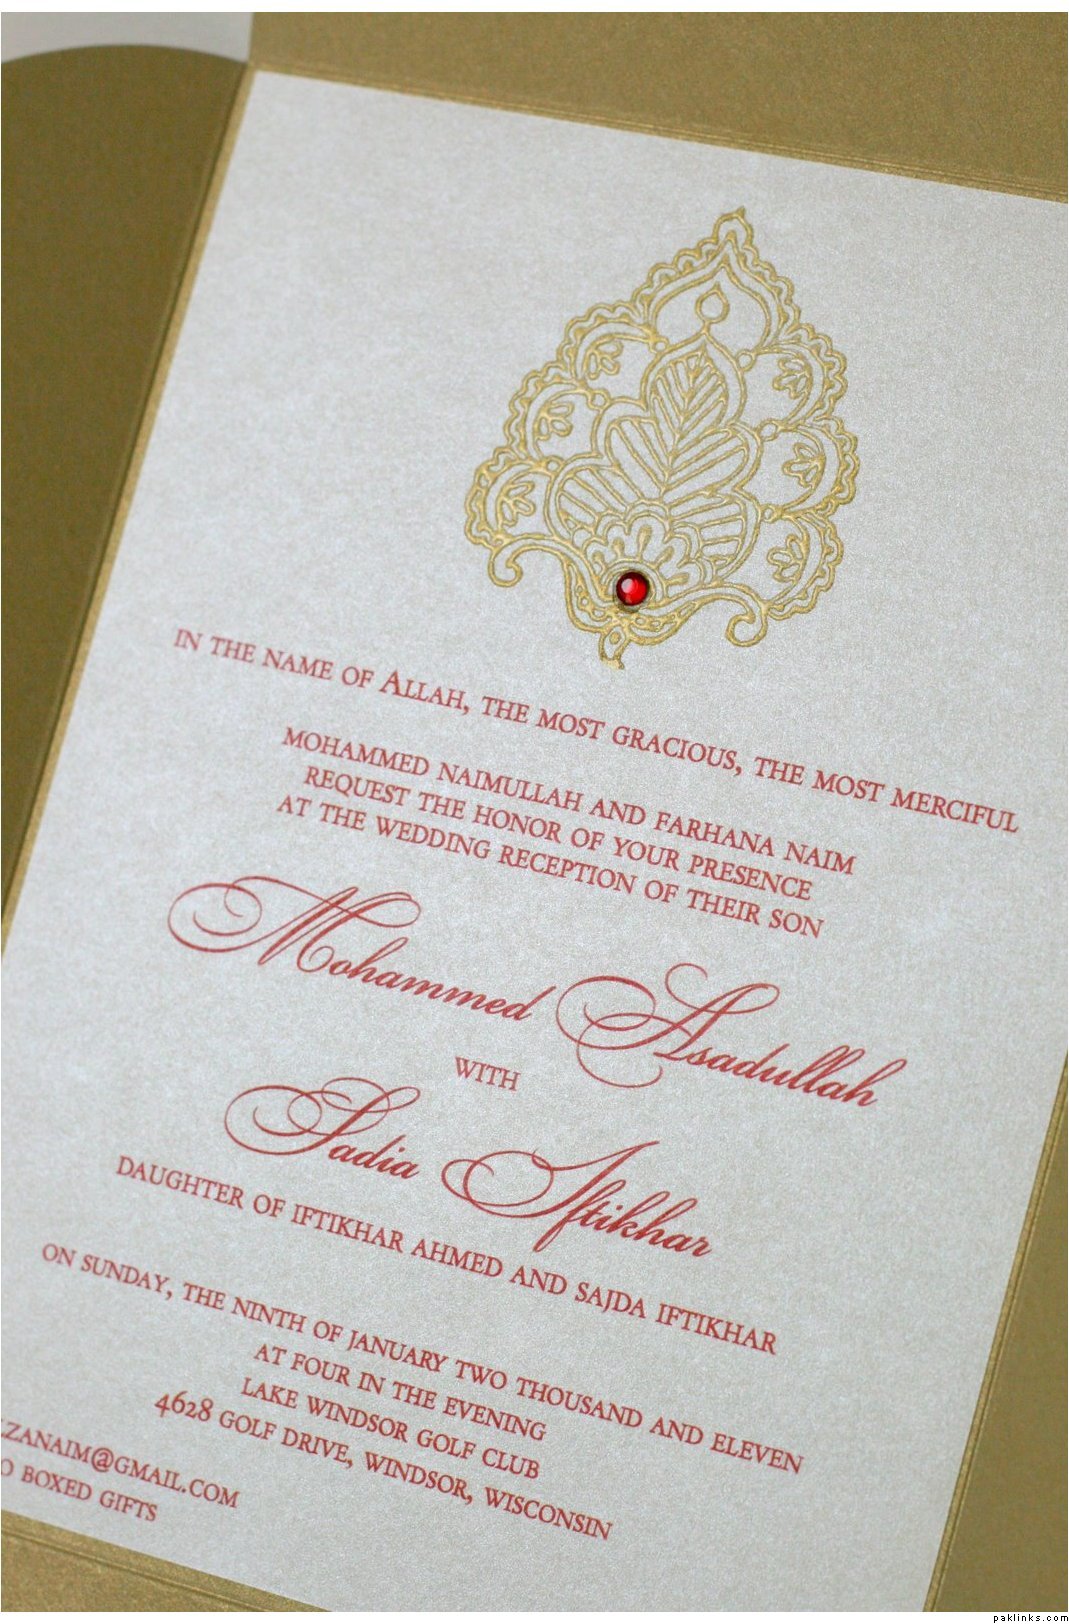 IN THE NAME OF ALLAH, THE MOST GRACIOUS, THE MOST MERCIFUL
MOHAMMED NAIMULLAH AND FARHANA NAIM
REQUEST THE HONOR OF YOUR PRESENCE
AT THE WEDDING RECEPTION OF THEIR SON
Mohammed Asadullah
WITH
Sadia Iftikhar
DAUGHTER OF IFTIKHAR AHMED AND SAJDA IFTIKHAR
ON SUNDAY, THE NINTH OF JANUARY TWO THOUSAND AND ELEVEN
AT FOUR IN THE EVENING
LAKE WINDSOR GOLF CLUB
4628 GOLF DRIVE, WINDSOR, WISCONSIN
ZANAIM@GMAIL.COM
O BOXED GIFTS
paklinks.com